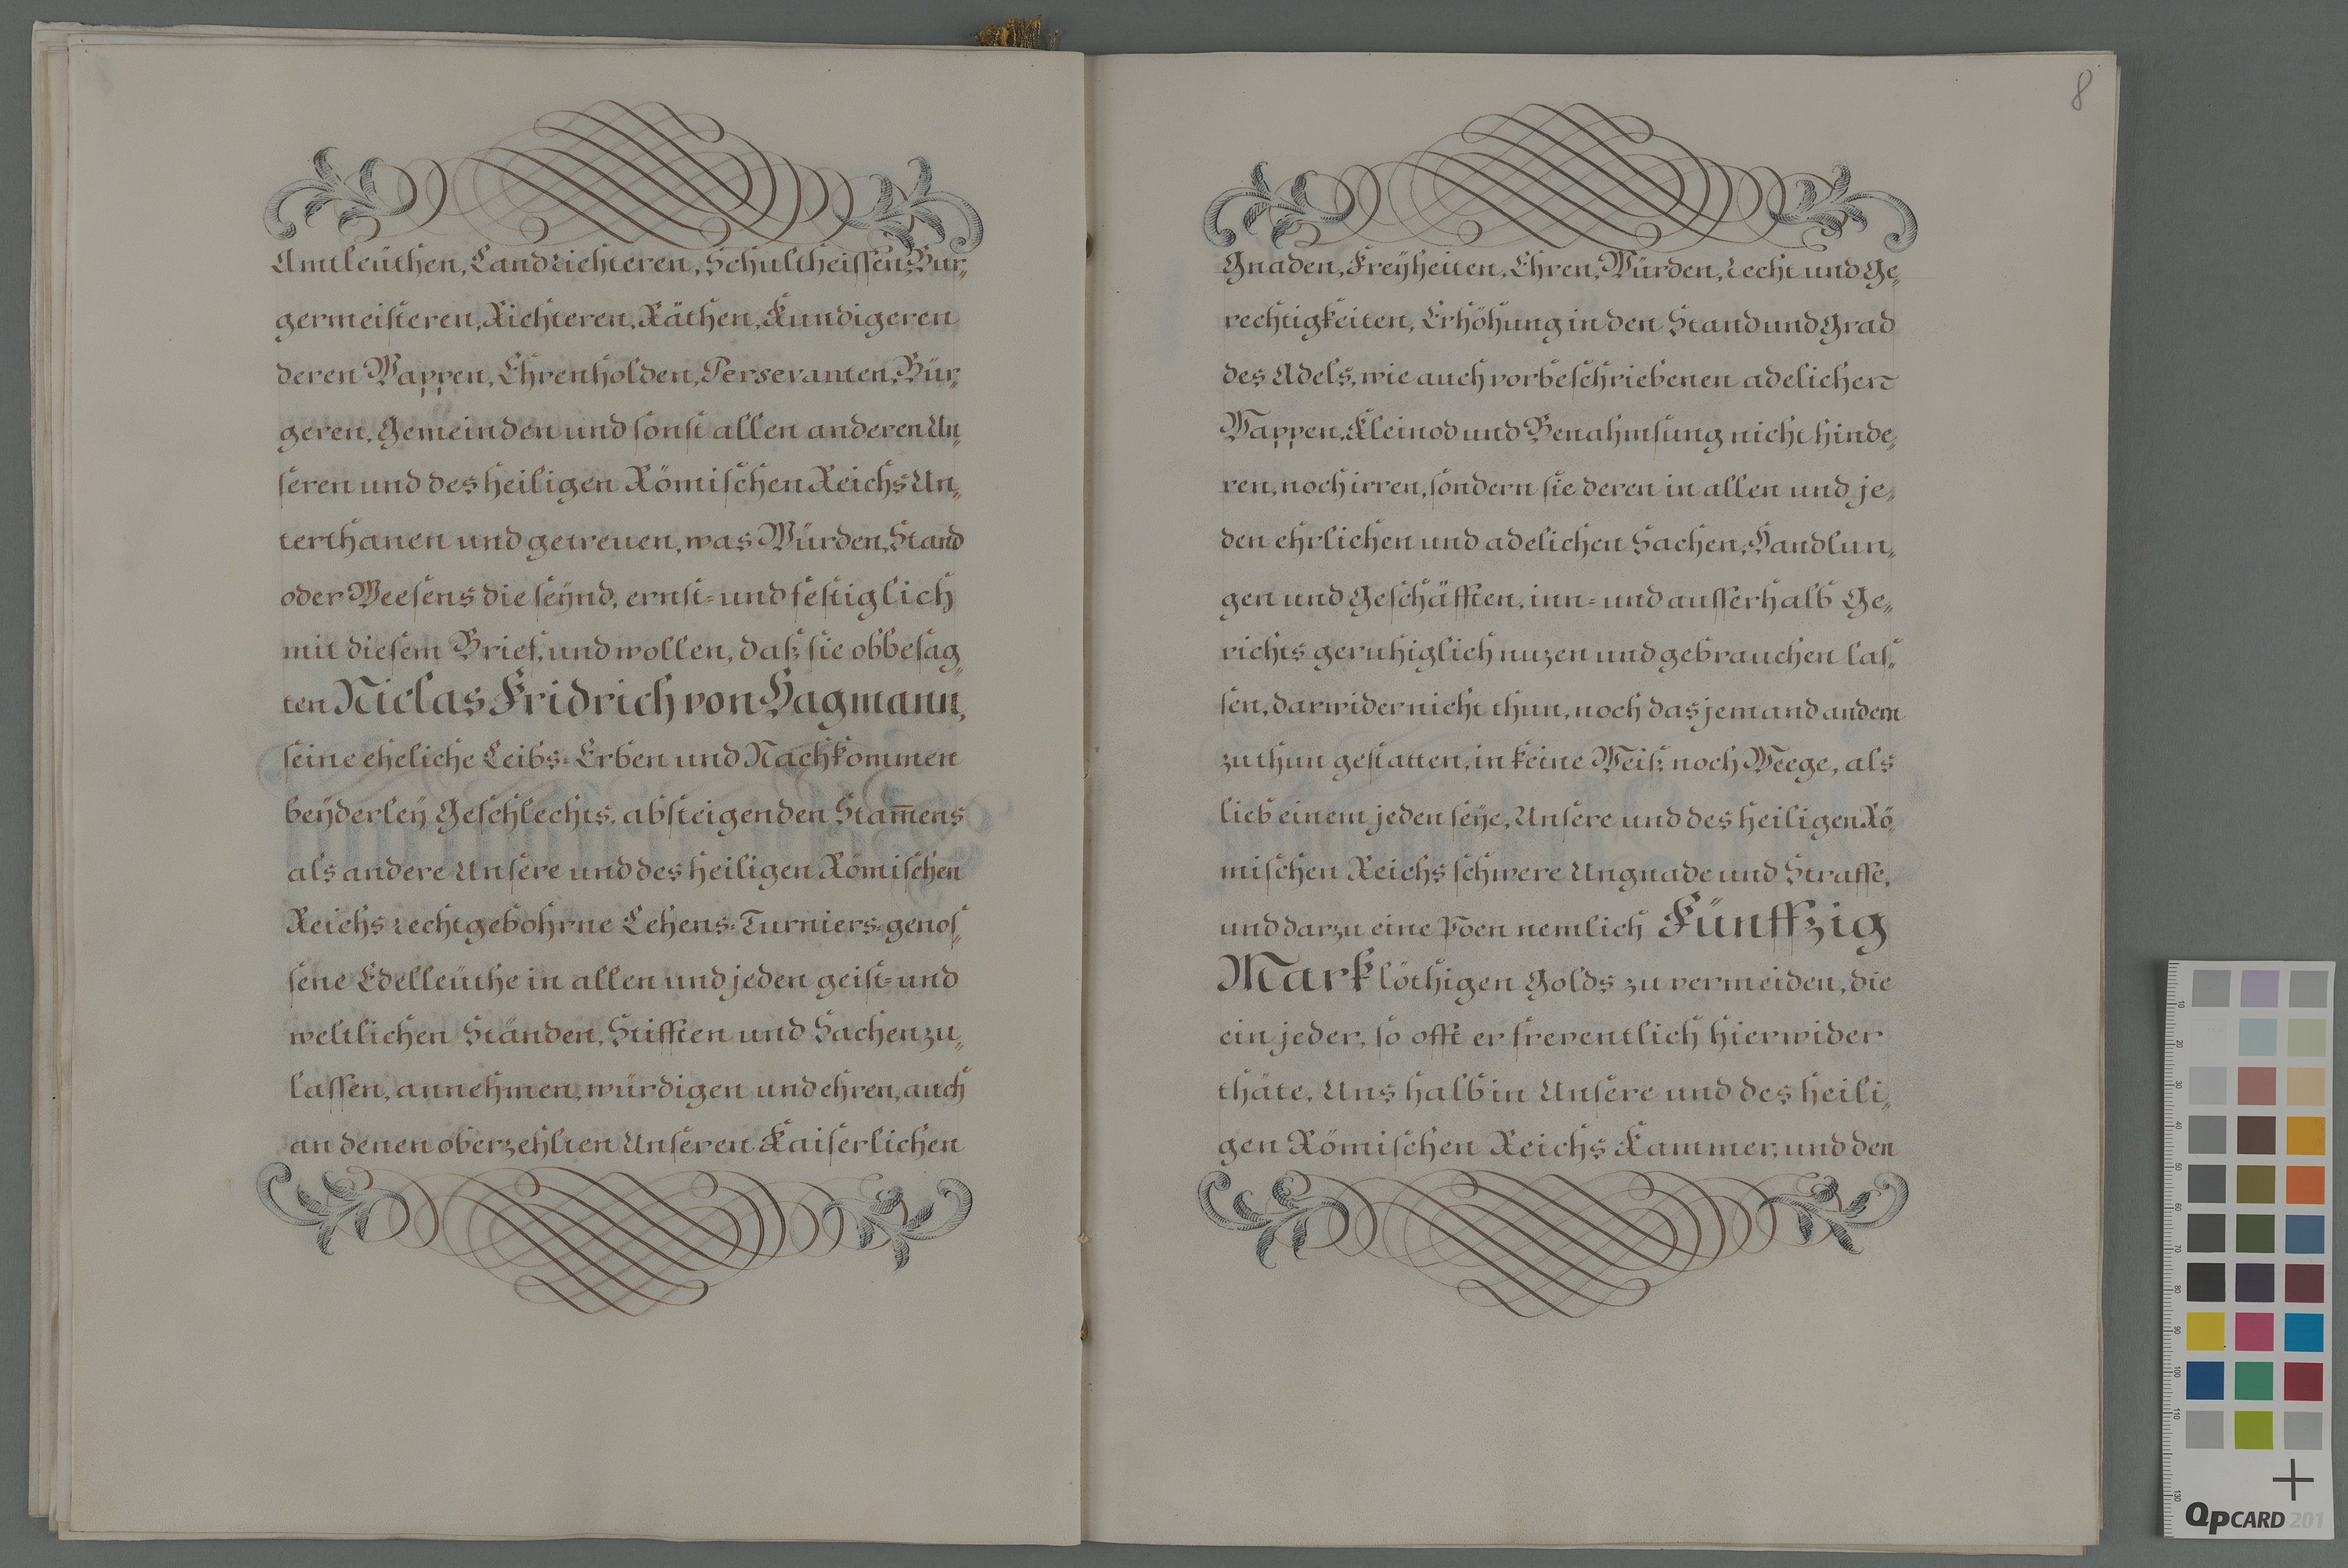 Amtleüthen, Landrichteren, Schultheissen, Bur„
germeisteren, Richteren, Räthen, Kundigeren
deren Wappen, Ehrenholden, Persevanten, Bür„
geren, Gemeinden und sonst allen anderen Un„
seren und des heiligen Römischen Reichs Un„
terthanen und getreuen, was Würden, Stand
oder Weesens die seÿnd, ernst= und festiglich
mit diesem Brief, und wollen, daß sie obbesag„
ten Niclas Fridrich von Hagmann,
seine eheliche Leibs=Erben und Nachkommen
beÿderleÿ Geschlechts, absteigenden Stam̅ens
als andere Unsere und des heiligen Römischen
Reichs rechtgebohrne Lehens=Turniers=genos„
sene Edelleüthe in allen und jeden geist= und
weltlichen Ständen, Stifften und Sachen zu„
lassen, annehmen, würdigen und ehren, auch
an denen oberzehlten Unseren Kaiserlichen
8
Gnaden, Freÿheiten, Ehren, Würden, recht und Ge„
rechtigkeiten, Erhöhung in den Stand und Grad
des Adels, wie auch vorbeschriebenen adelichen
Wappen, Kleinod und Benahmsung nicht hinde„
ren, noch irren, sondern sie deren in allen und je„
den ehrlichen und adelichen Sachen, Handlun„
gen und Geschäfften, inn= und ausserhalb Ge„
richts geruhiglich nuzen und gebrauchen las„
sen, darwider nicht thun, noch das jemand andem
zu thun gestatten, in keine Weiß noch Weege, als
lieb einem jeden seÿe, Unsere und des heiligen Rö„
mischen Reichs schwere Ungnade und Straffe,
und darzu eine Poen nemlich Fünffzig
Mark löthigen Golds zu vermeiden, die
ein jeder, so offt er freventlich hierwider
thäte, Uns halb in Unsere und des heili„
gen Römischen Reichs Kammer, und den
10
20
30
40
50
60
70
80
90
100
110
130
QpCARD 201